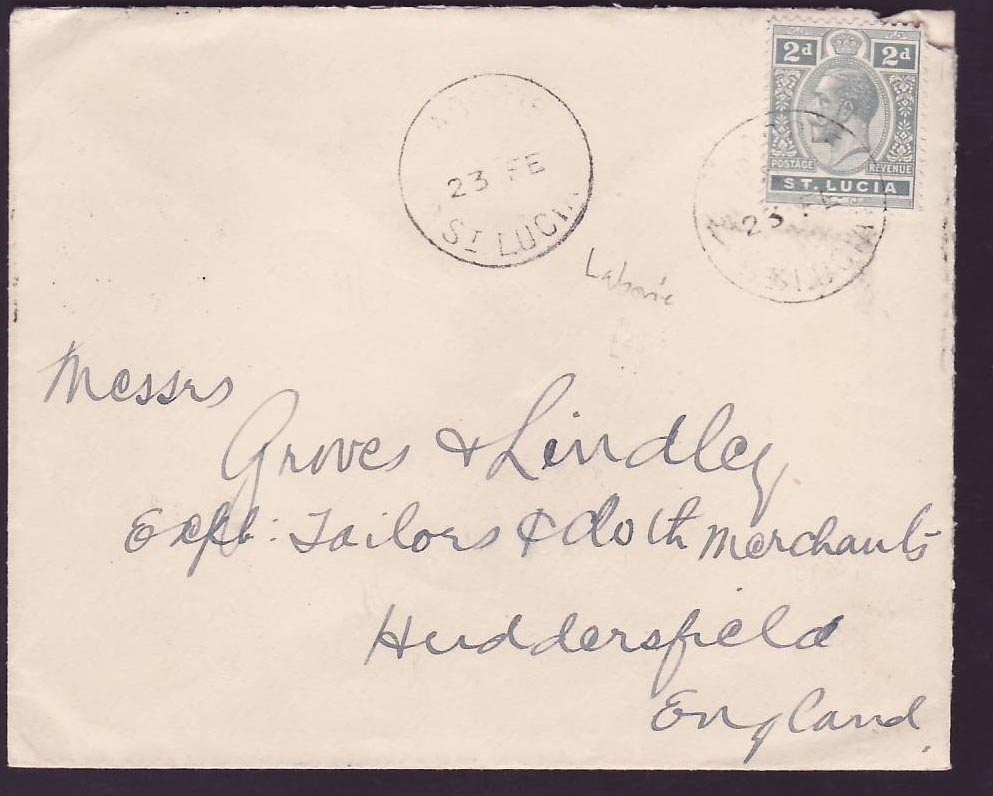 2d 2d
POSTAGE REVENUE
ST. LUCIA
23 FE
ST LUCIA
23 FE
ST LUCIA
Laborie
Messrs
Groves & Lindley
Expt: Tailors & Cloth Merchants
Huddersfield
England